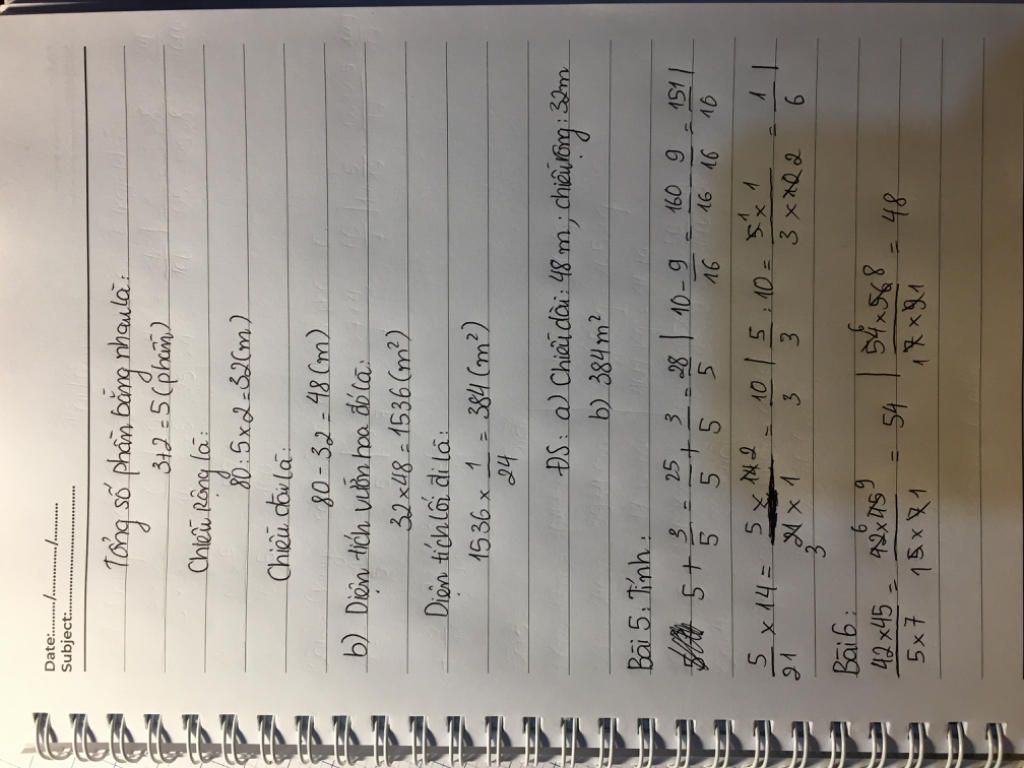 Date:............/............/............
Subject:....................................
Tổng số phần bằng nhau là:
3+2 = 5 (phần)
Chiều rộng là:
80 : 5 x 2 = 32 (m)
Chiều dài là:
80 - 32 = 48 (m)
b) Diện tích vườn hoa đó là:
32 x 48 = 1536 (m²)
Diện tích lối đi là:
1536 x 1/24 = 384 (m²)
ĐS: a) Chiều dài: 48 m ; chiều rộng: 32m
b) 384 m²
Bài 5: Tính:
5 + 3/5 = 25/5 + 3/5 = 28/5 | 10 - 9/16 = 160/16 9/16 = 151/16 |
5/21 x 14 = 5 x 14 2/21 3 x 1 = 10/3 | 5/3 : 10 = 5 1 x 1/3 x 2 = 1/6 |
Bài 6:
42 x 45/5 x 7 = 42 6 x 45 9/1 5 x 7 1 = 54 | 54 6 x 56 8/1 7 x 9 1 = 48